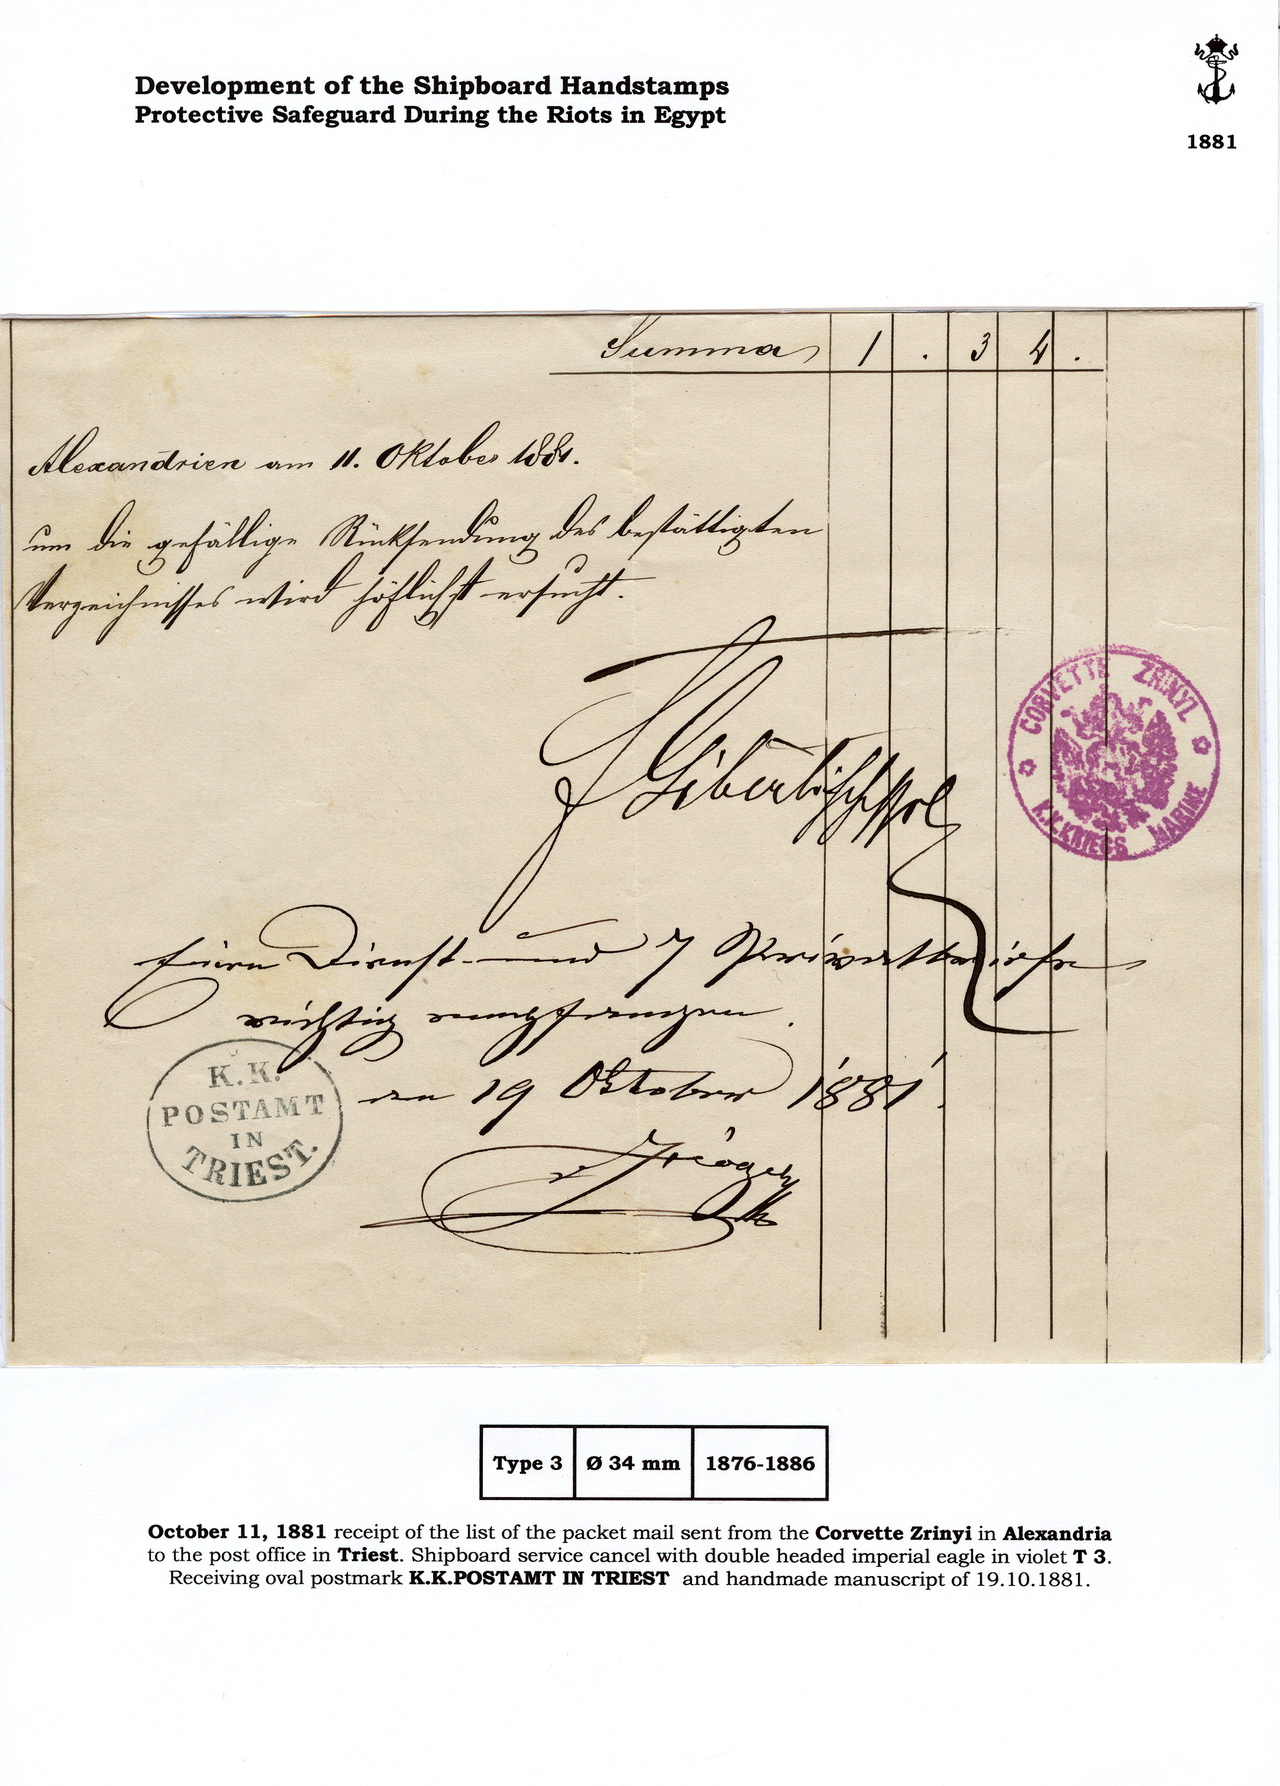 Development of the Shipboard Handstamps
Protective Safeguard During the Riots in Egypt
1881
Summa 1 . 3 4 .
Alexandrien am 11. Oktober 1881.
um die gefällige Rücksendung des bestättigten
Verzeichnisses wird höflichst ersucht.
CORVETTE ZRINYI
K.K.KRIEGS MARINE
Dienst- und 7 Privatbriefe
richtig empfangen.
K.K.
POSTAMT
IN
TRIEST.
am 19 Oktober 1881.
Type 3 Ø 34 mm 1876-1886
October 11, 1881 receipt of the list of the packet mail sent from the Corvette Zrinyi in Alexandria
to the post office in Triest. Shipboard service cancel with double headed imperial eagle in violet T 3.
Receiving oval postmark K.K.POSTAMT IN TRIEST and handmade manuscript of 19.10.1881.